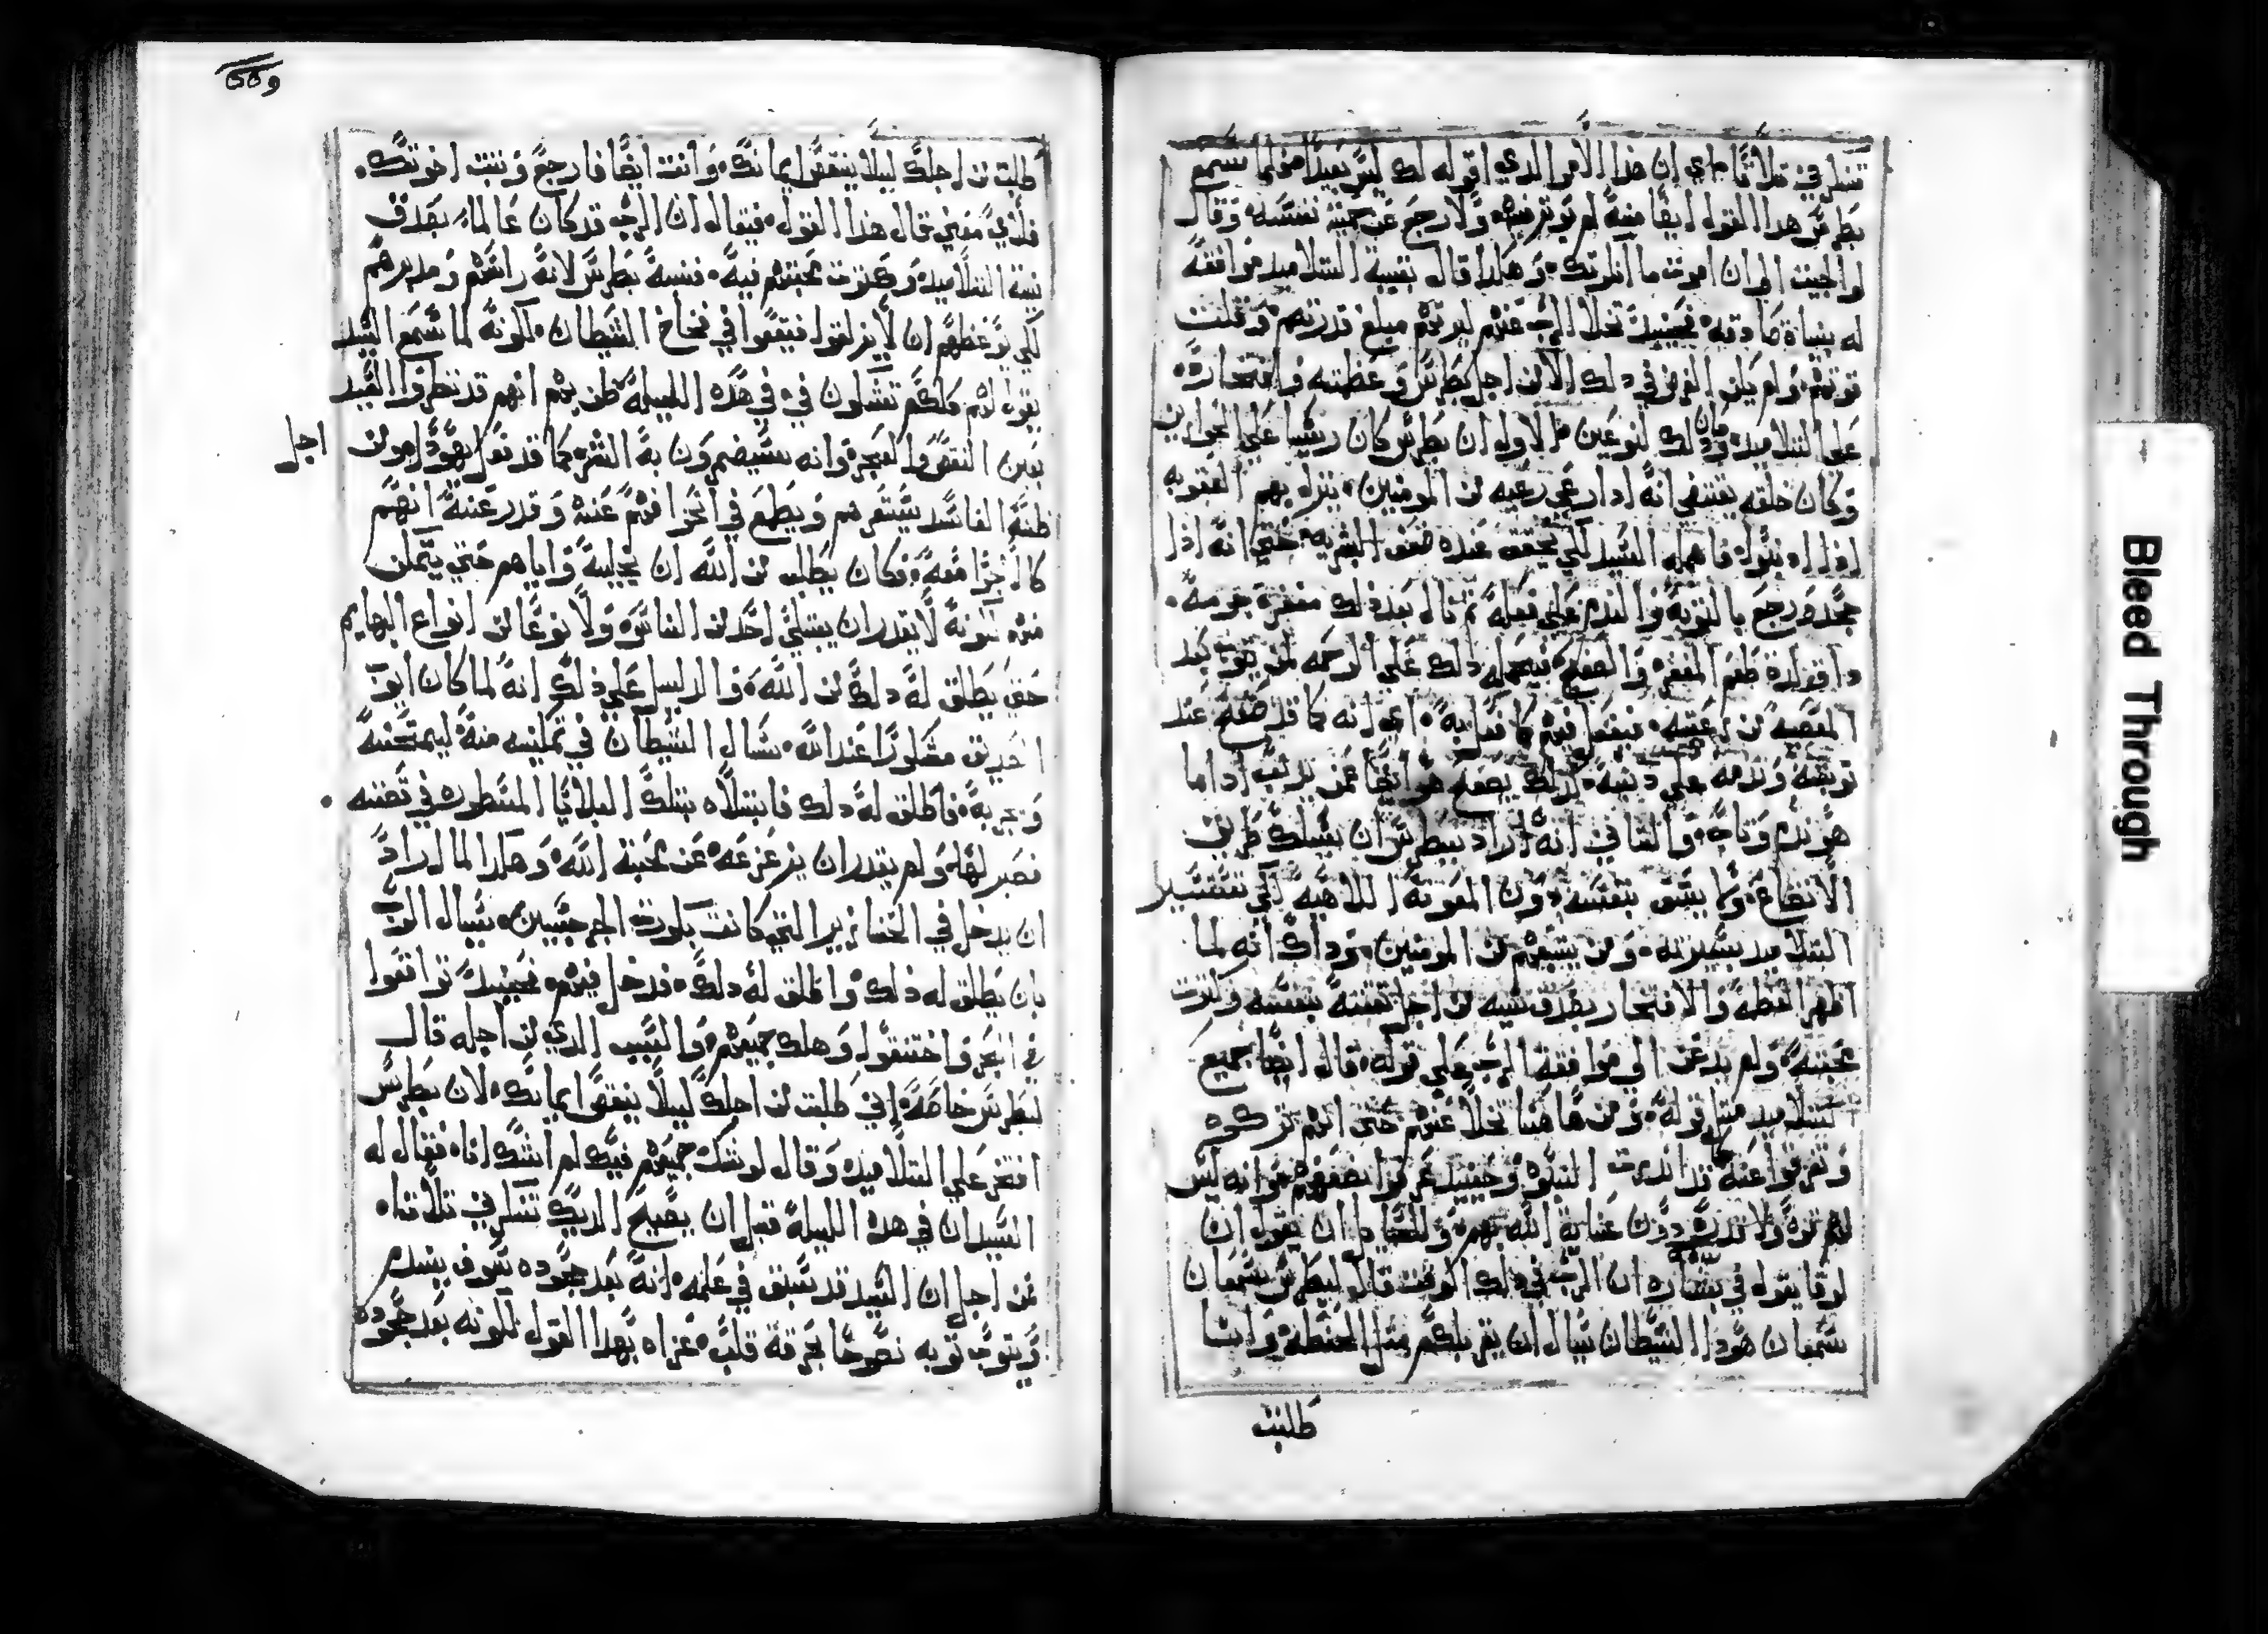 تنكرني ثلاثًا اي ان هذا الامر الذي اقوله لك ليس بعيدًا فلما سمع
بطرس هذا القول ايضًا منه لم يوثر فيه ولا رجع عن حميّة نفسه وقال
لو اجيت الي ان اموت ما انكرتك وهكذا قال بقيية التلاميذ موافقه
له بنياة صادقه فحينيذ تخلا الرب عنهم ليريهم مبلغ قدرتهم وقلت
قوتهم ولم يكن الغرض في ذلك الا من اجل بطرس وعظمته وافتخاره
علي التلاميذ وكان ذلك لنوعين الاول ان بطرس كان ريسًا علي الحواريين
وكان خلقه يقتضي انه اذا راي رعيه من المومنين ينزل بهم العقوبه
اول اول فاهمله السيد لكي يتحقق عنده ضعف البشريه حتي انه اذا
جحد ورجع بالتوبه والندم علي فعله ثم نال بعد ذلك مغفرة جرمه
داقة لذة طعم المغفره والصفح فيحمله ذلك علي الرحمه لمن يتوب بعد
المعصيه من رعيته فيفعل فيهم كما فعل به اي انه كما قد صفح عند
توبته وندمه علي دنبه كذلك يصفح هو ايضًا عمن يذنب اذا ما
هو ندم وتاب والثاني انه اراد ببطرس ان يسلك طريق
الاتضاع ولا يتق بنفسه دون المعونه الالاهيه لكي تتسير
التلاميذ بسيرته ومن يتبعهم من المومنين وذاك انه لما
اظهر العظه والافتخار بصدق نيته من اجل تقته بنفسه وكثرت
محبته ولم يدعن الي موافقة الرب علي قوله قال ايضًا جميع
التلاميذ مثل قوله ومن هاهنا تخلا عنهم حتي انهم تركوه
وتفرقوا عنه كما قد اندرت النبوه وحينيذ عرفوا ضعفهم وانه ليس
لهم قوه ولا قدره دون عناية الله بهم وللسايل ان يقول ان
لوقا يقول في بشارته ان الرب في ذلك الوقت قال لبطرس سمعان
سمعان هودا الشيطان سال ان يغربلكم مثل الحنطه وانا
طلبت
اجل
طلبت من اجلك ليلا ينقص ايمانك وانت ايضًا فارجع وثبت اخوتك
فلاي معني قال هذا القول فيقال ان الرب قد كان عالمًا بصدق
نية التلاميذ وكثرت محبتهم فيه ونيه بطرس لانه راسهم ومدبرهم
لكي يوعظهم ان لا يزلقوا فيقعوا في فخاخ الشيطان لكونه لما سمع السيد
يقول لهم كلكم تشكون في في هذه الليله ظن بهم انهم قد نظروا السيد
بعين النقص والعجز وانه سيضمرون به الشر كما قد فعل يهودا ومن
ظنه الفاسد يستفرهم ويطمع في انحرافهم عنه وقدر عنه انهم
كالاجرا معه فكان يطلب من الله ان يخليه واياهم حتي يتمكن
منهم لكونه لا يقدر ان يبتلي احد من الناس ولا نوعًا من انواع البهايم
حتي يطلق له ذلك من الله والدليل علي ذلك انه لما كان ايوب
الصديق مشكورًا عند الله سال الشيطان في تمكينه منه ليمتحنه
ويجربه فاطلق له ذلك فابتلاه بتلك البلايا المسطوره في قصته
فصبر لها ولم يقدر ان يزعزعه عن محبة الله وهكذا لما اراد
ان يدخل في الخنازير التي كانت بكورة الجرجسيين سال الرب
بان يطلق له ذلك واطلق له ذلك فدخل فيهم فحينيذ تواقعوا
في البحر واختنقوا وهلك جميعهم والسبب الذي من اجله قال
لبطرس خاصة اني طلبت من اجلك ليلا ينقص ايمانك لان بطرس
افتخر علي التلاميذ وقال لو شك جميعهم فيك لم اشك انا فقال له
السيد ان في هذه الليله قبل ان يصيح الديك تنكرني ثلاثا
من اجل ان السيد قد سبق في علمه انه بعد جحوده سوف يندم
ويتوب توبه نصوحًا بحرقة قلب عزاه بهذا القول لكونه بعد جحوده